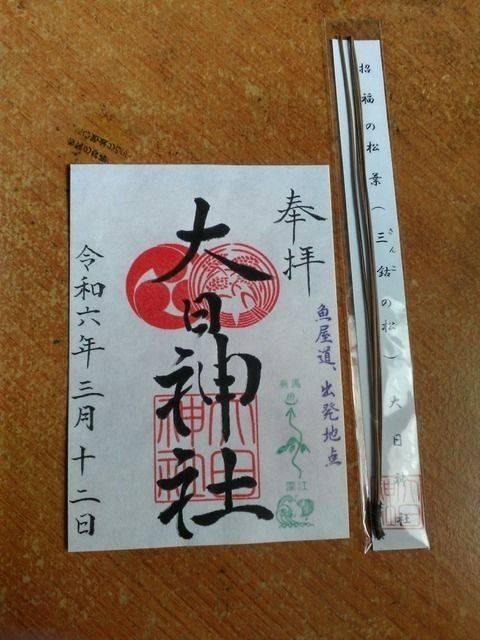 奉拝
大日神社
魚屋道、出発地点
有馬
深江
大日神社
令和六年三月十二日
招福の松葉(三鈷の松)大日神社
さんこ